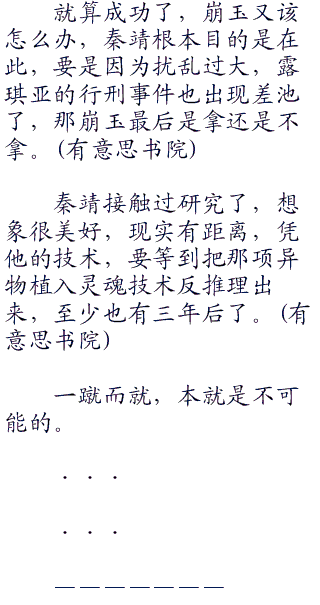 就算成功了，崩玉又该
怎么办，秦靖根本目的是在
此，要是因为扰乱过大，露
琪亚的行刑事件也出现差池
了，那崩玉最后是拿还是不
拿。(有意思书院)
秦靖接触过研究了，想
象很美好，现实有距离，凭
他的技术，要等到把那项异
物植入灵魂技术反推理出
来，至少也有三年后了。(有
意思书院)
一蹴而就，本就是不可
能的。
．．．
．．．
———————